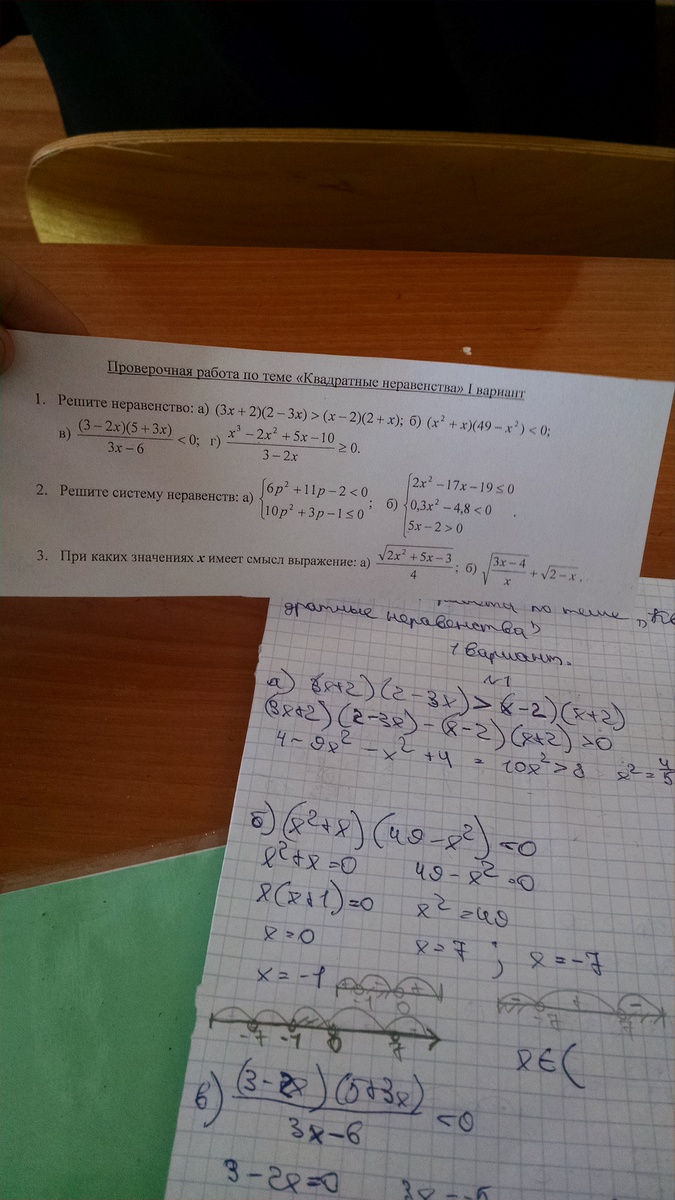 Проверочная работа по теме «Квадратные неравенства» I вариант
1. Решите неравенство: а) (3x + 2)(2 − 3x) > (x − 2)(2 + x); б) (x² + x)(49 − x²) < 0;
в) (3 − 2x)(5 + 3x) / 3x − 6 < 0; г) x³ − 2x² + 5x − 10 / 3 − 2x ≥ 0.
2. Решите систему неравенств: а) { 6p² + 11p − 2 < 0 10p² + 3p − 1 ≤ 0 ; б) { 2x² − 17x − 19 ≤ 0 0,3x² − 4,8 < 0 5x − 2 > 0 .
3. При каких значениях x имеет смысл выражение: а) √(2x² + 5x − 3) / 4 ; б) √((3x − 4) / x) + √(2 − x) .
по теме „Кв
дратные неравенства"
1 вариант.
№1
а) (3x+2)(2−3x)>(x−2)(x+2)
(3x+2)(2−3x)−(x−2)(x+2)>0
4−9x²−x²+4 = 10x²>8 x²=4/5
б) (x²+x)(49−x²)<0
x²+x=0 49−x²=0
x(x+1)=0 x²=49
x=0 x=7 ; x=−7
x=−1
−1 0
−7 7
−7 −1 0 7
x∈(
в) (3−2x)(5+3x) / 3x−6 <0
3−2x=0